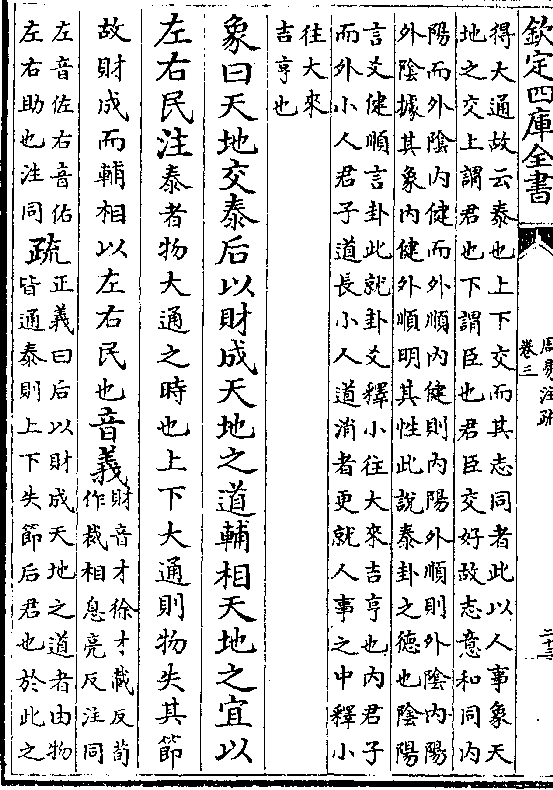 欽定四庫全書
周易注疏
卷三
二十三
得大通故云泰也上下交而其志同者此以人事象天
地之交上謂君也下謂臣也君臣交好故志意和同内
陽而外陰内健而外順内健則内陽外順則外陰内陽
外陰據其象内健外順明其性此說泰卦之德也陰陽
言爻健順言卦此就卦爻釋小往大來吉亨也内君子
而外小人君子道長小人道消者更就人事之中釋小
往大來
吉亨也
象曰天地交泰后以財成天地之道輔相天地之宜以
左右民注泰者物大通之時也上下大通則物失其節
故財成而輔相以左右民也音義財音才徐才載反荀
作裁相息亮反注同
左音佐右音佑
左右助也注同
疏正義曰后以財成天地之道者由物
皆通泰則上下失節后君也於此之